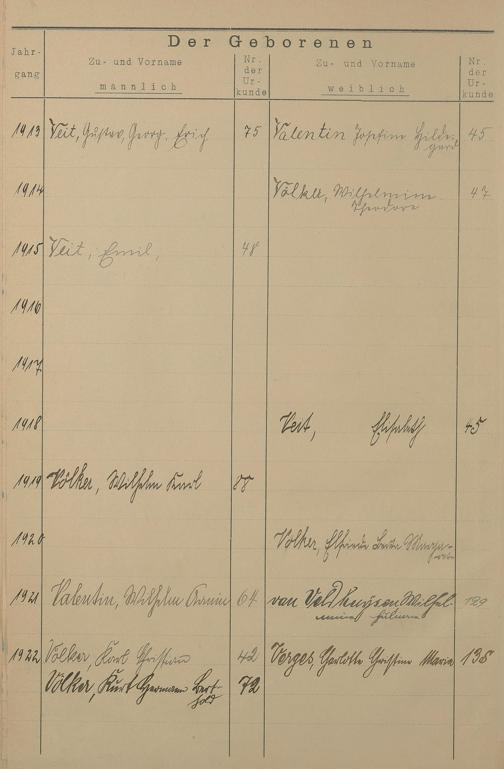 Der Geborenen
Jahr-
gang
Zu- und Vorname
männlich
Nr.
der
Ur-
kunde
Zu- und Vorname
weiblich
Nr.
der
Ur-
kunde
1913 Veit, Gustav, Georg, Erich 75 Valentin Josefine Hilde- 45
gard
1914 Völker, Wilhelmine 47
Theodore
1915 Veit, Emil, 48
1916
1917
1918 Veit, Elisabeth 45
1919 Völker, Wilhelm Karl 88
1920 Völker, Elfriede Berta Marga-
1921 Valentin, Wilhelm Armin 64 van Wilhel- 129
mine
1922 Völker, Karl Christian 42 Verges, Charlotte Christine Maria 138
Völker, Kurt Hermann Bert- 72
hold